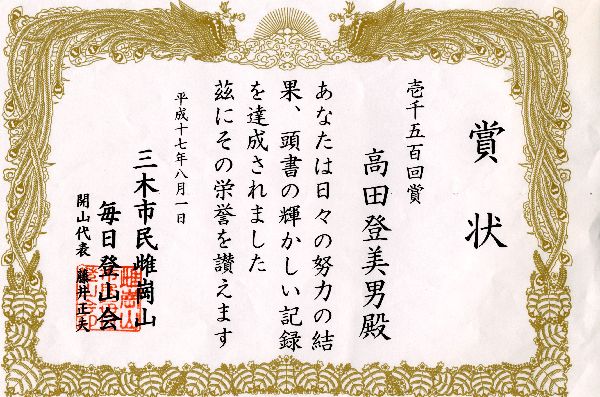 賞状
壱千五百回賞
高田登美男殿
あなたは日々の努力の結
果、頭書の輝かしい記録
を達成されました
茲にその栄誉を讃えます
平成十七年八月一日
三木市民雌岡山
毎日登山会
開山代表 藤井正夫